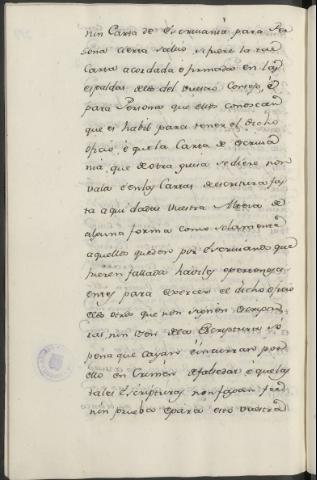 nin Carta de escrivania para Per
sona cierta salvo si fuere la tal
Carta acordada e firmada en las
espaldas dellos del vuestro Consejo, é
para Persona que ellos conoscan
que es habil para tener el dicho
oficio, é que la Carta de Escriva
nia, que de otra guisa se diere non
vala é en las Cartas de escrivania fas
ta aqui dadas Vuestra Merced de
alguna forma como solamente
aquellos queden por Escrivanos que
fueren fallados habiles é pertenesci
entes para exercer el dicho oficio
e los otros que non
nin den Escripturas só
pena que cayan é incurran por
ello en Crimen de falsedad e que las
tales Escripturas non fagan fee
nin prueba é para esto vuestra